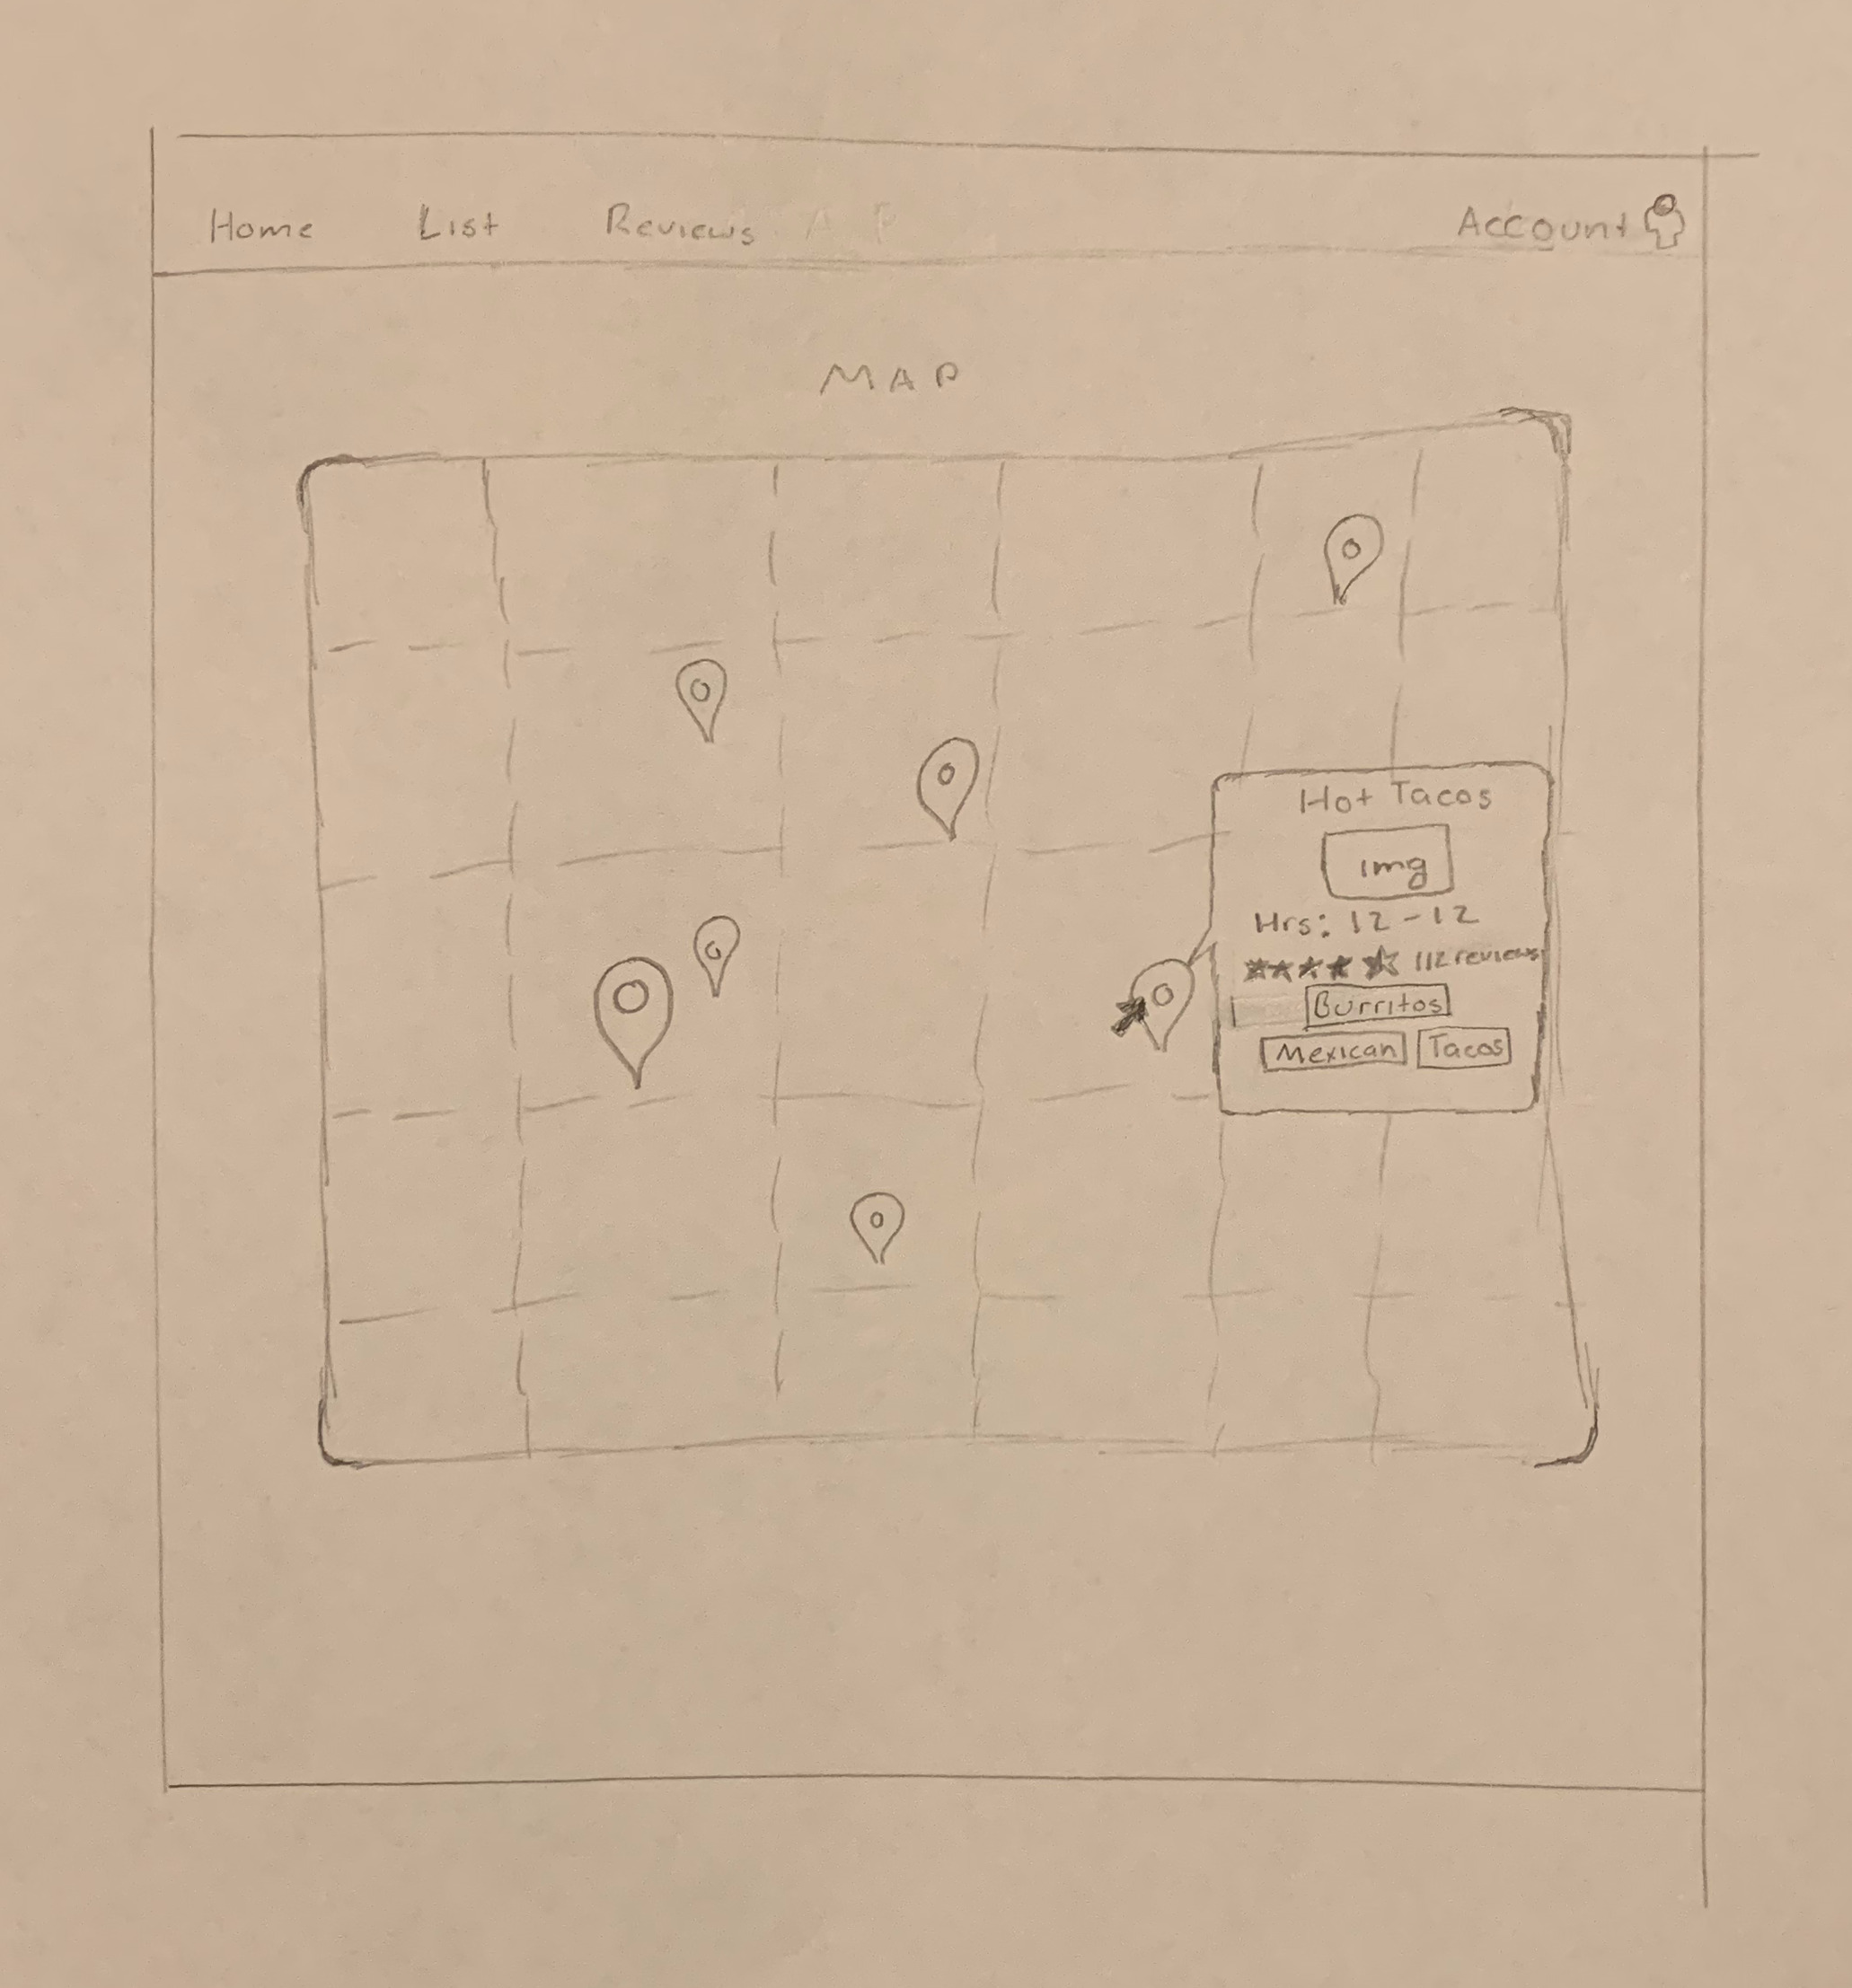 Home List Reviews Account
MAP
Hot Tacos
img
Hrs: 12-12
112 reviews
Burritos
Mexican Tacos